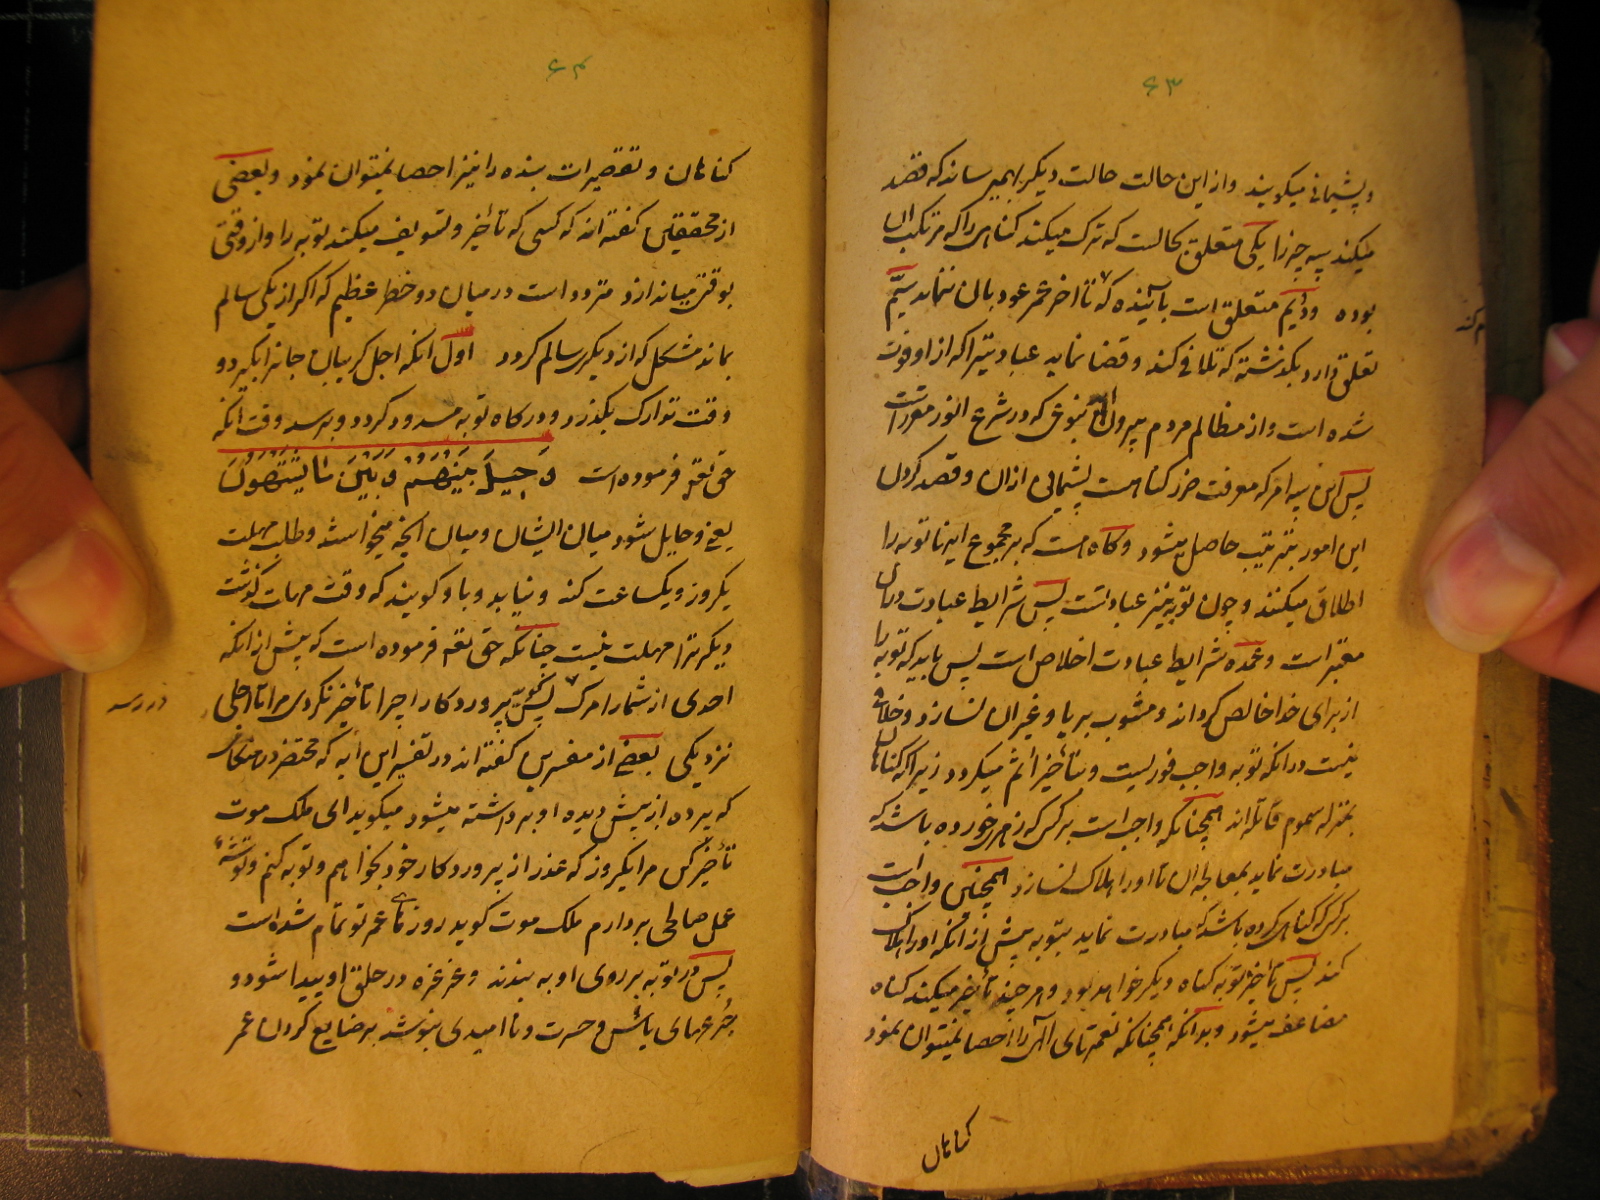 ۶۳
و پشیمانی میگویند و از این حالت حالت دیگر بهمیرساند که قصد
میکند سه چیز را یکی متعلق بحالست که ترک میکند کناهی را که مرتکب آن
بوده و دویم متعلق است بآینده که تا اخر عمر عود بان ننماید سیّم
تعلق دارد بکذشته که تلافی کند و قضا نماید عباداتیرا که از او فوت
شده است و از مظالم مردم بیرون آید بنوعی که در شرع انور مقرر است
پس این سه امر که معرفت ضرر کناهست پشیمانی ازان و قصد کردن
این امور بترتیب حاصل میشود و کاه هست که بر مجموع اینها توبه را
اطلاق میکنند و چون توبه نیز عبادتست پس شرایط عبادت دران
معتبر است و عمده شرایط عبادت اخلاص است پس باید که توبه را
از برای خدا خالص کرداند و مشوب بریا و غیر ان نسازد و خلافی
نیست در انکه توبه واجب فوریست و بتأخیر اثم میکردد زیرا که کناهان
بمنزله سموم قاتله‌اند همچنانکه واجب است بر کسی که زهر خورده باشد که
مبادرت نماید بمعالجه ان تا اورا هلاک نسازد همچنین واجب است
بر کسی که کناهی کرده باشد که مبادرت نماید بتوبه پیش از انکه اورا هلاک
کند پس تأخیر توبه کناه دیکر خواهد بود و هر چند تأخیر میکند کناه
مضاعف میشود و بدانکه همچنانکه نعمتهای الهی را احصا نمیتوان نمود
کناهان
۶۴
کناهان و تقصیرات بنده را نیز احصا نمیتوان نمود و بعضی
از محققین کفته‌اند که کسی که تأخیر و تسویف میکند توبه را و از وقتی
بوقتی میاندازد متردد است در میان دو خطر عظیم که اکر از یکی سالم
بماند مشکل که از دیکری سالم کردد اول انکه اجل کریبان جانرا بکیرد و
وقت تدارک بکذرد و درکاه توبه مسدود کردد و برسد وقت انکه
حق تعم فرموده است وَحِیلَ بَیْنَهُمْ وَبَیْنَ مَا یَشْتَهُونَ
یعنی و حایل شود میان ایشان و میان انچه میخواستند و طلب مهلت
یکروز و یکساعت کند و نیابد و باو کویند که وقت مهلت کذشت
دیکر ترا مهلت نیست چنانکه حق تعم فرموده است که پیش از انکه
احدی از شما را مرک پس کوید پروردکارا چرا تأخیر نکردی مرا تا اجلی
نزدیکی بعضی از مفسرین کفته‌اند در تفسیر این آیه که محتضر در هنکامی
که پرده از پیش دیده او برداشته میشود میکوید ای ملک موت
تأخیر کن مرا یکروز که عذر از پروردکار خود بخواهم و توبه کنم و توشه
عمل صالحی بردارم ملک موت کوید روزهای عمر تو تمام شده است
پس در توبه بر روی او به بندند و غرغره در حلق او پیدا شود و
جرعهای یأس و حسرت و ناامیدی بنوشد بر ضایع کردن عمر
در رسد